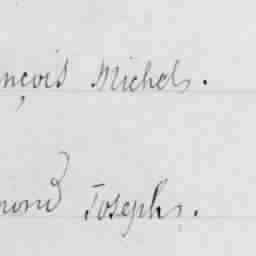 nçois Michels.
mond Josephs.